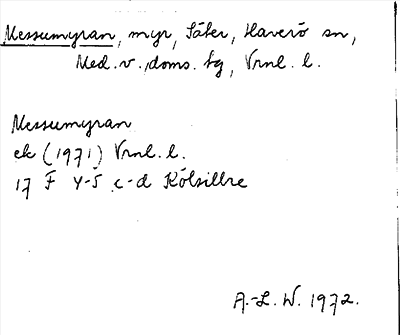 Messumyran, myr, Säter, Haverö sn,
Med. v. doms. tg, Vrnl. l.
Messumyran
ek (1971) Vrnl. l.
17 F 4-5 c-d Kölsillre
A.-L. W. 1972.